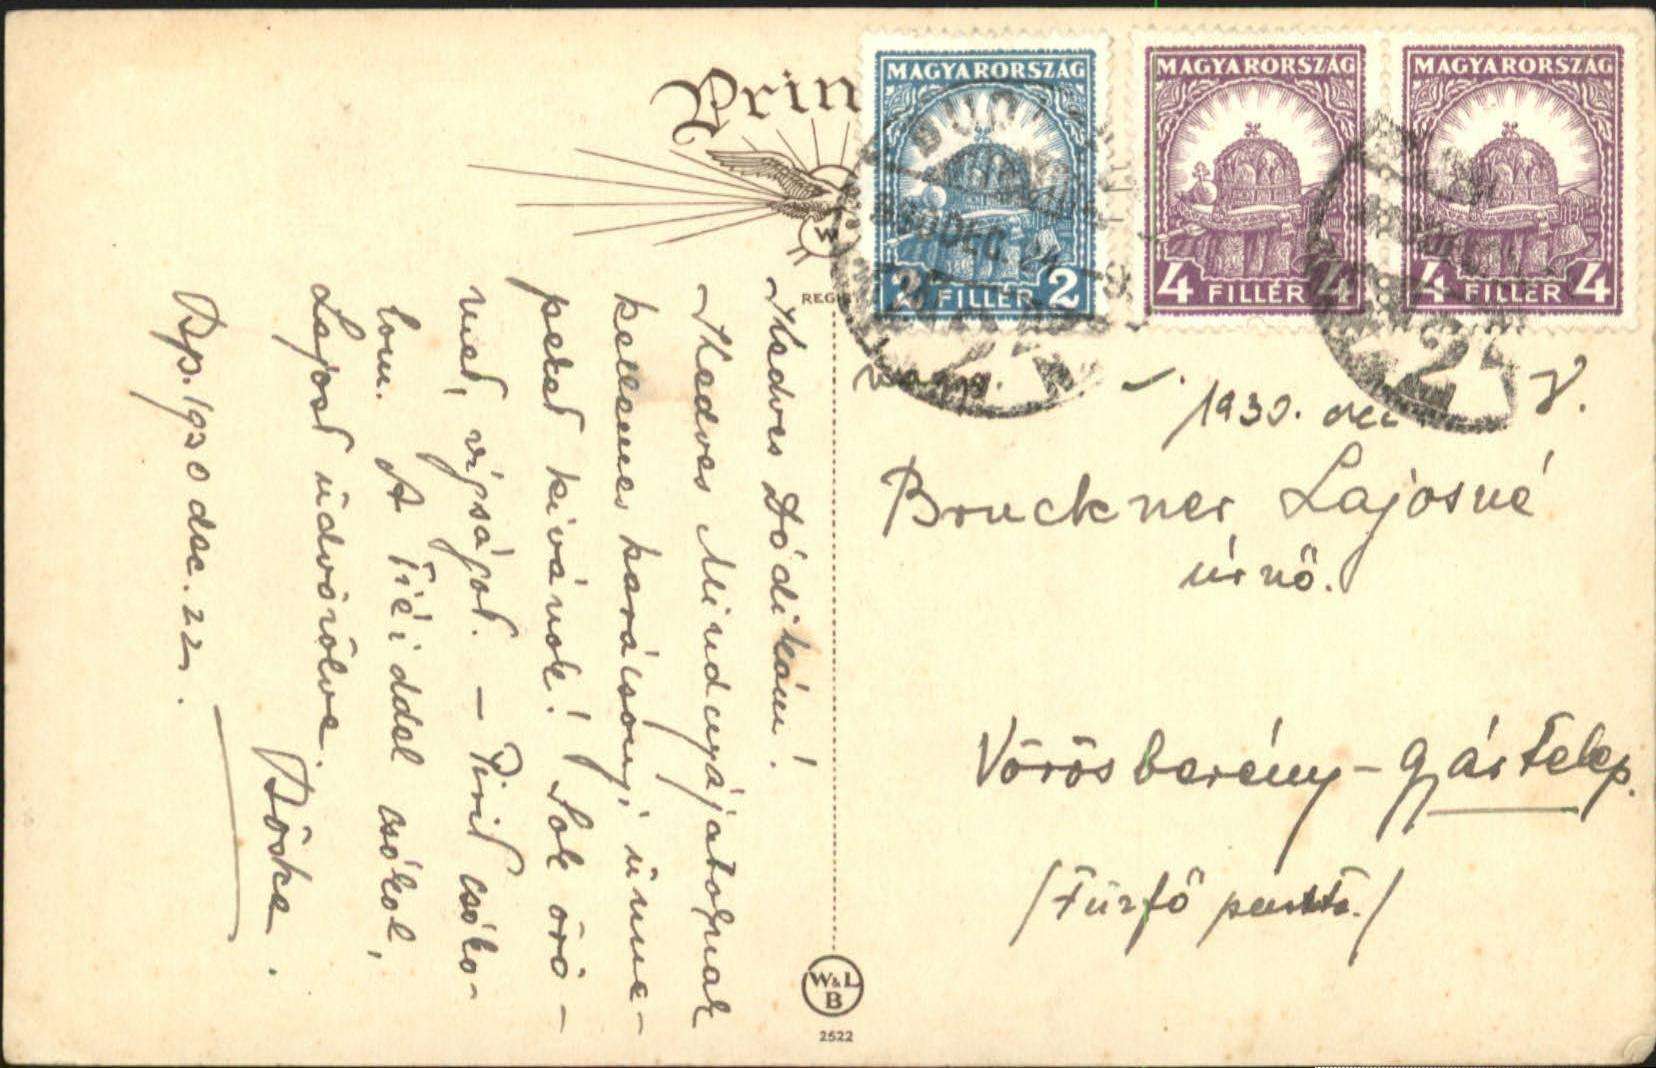 Prin
REGIS
W
MAGYARORSZÁG
2 FILLÉR 2
MAGYARORSZÁG
4 FILLÉR 4
MAGYARORSZÁG
4 FILLÉR 4
1930 DEC. 24
Kedves Dódikám!
Kedves Mindnyájatoknak
kellemes karácsonyi ünne-
peket kívánok! Sok örö-
met, vígságot. – Pirit csóko-
lom. A Tiéiddel csókol,
Lajost üdvözölve.
Böske.
Bp. 1930 dec. 22.
1930. dec
V.
Bruckner Lajosné
úrnő.
Vörösberény-gyártelep.
/Fűzfő posta./
W&L
B
2522